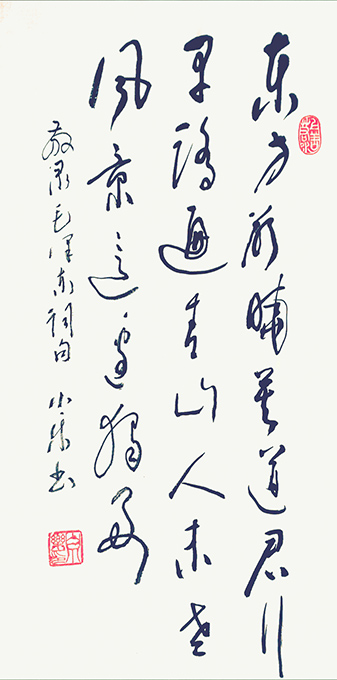 东方欲晓莫道君行
早踏遍青山人未老
风景这边独好
敬录毛泽东词句 小 书